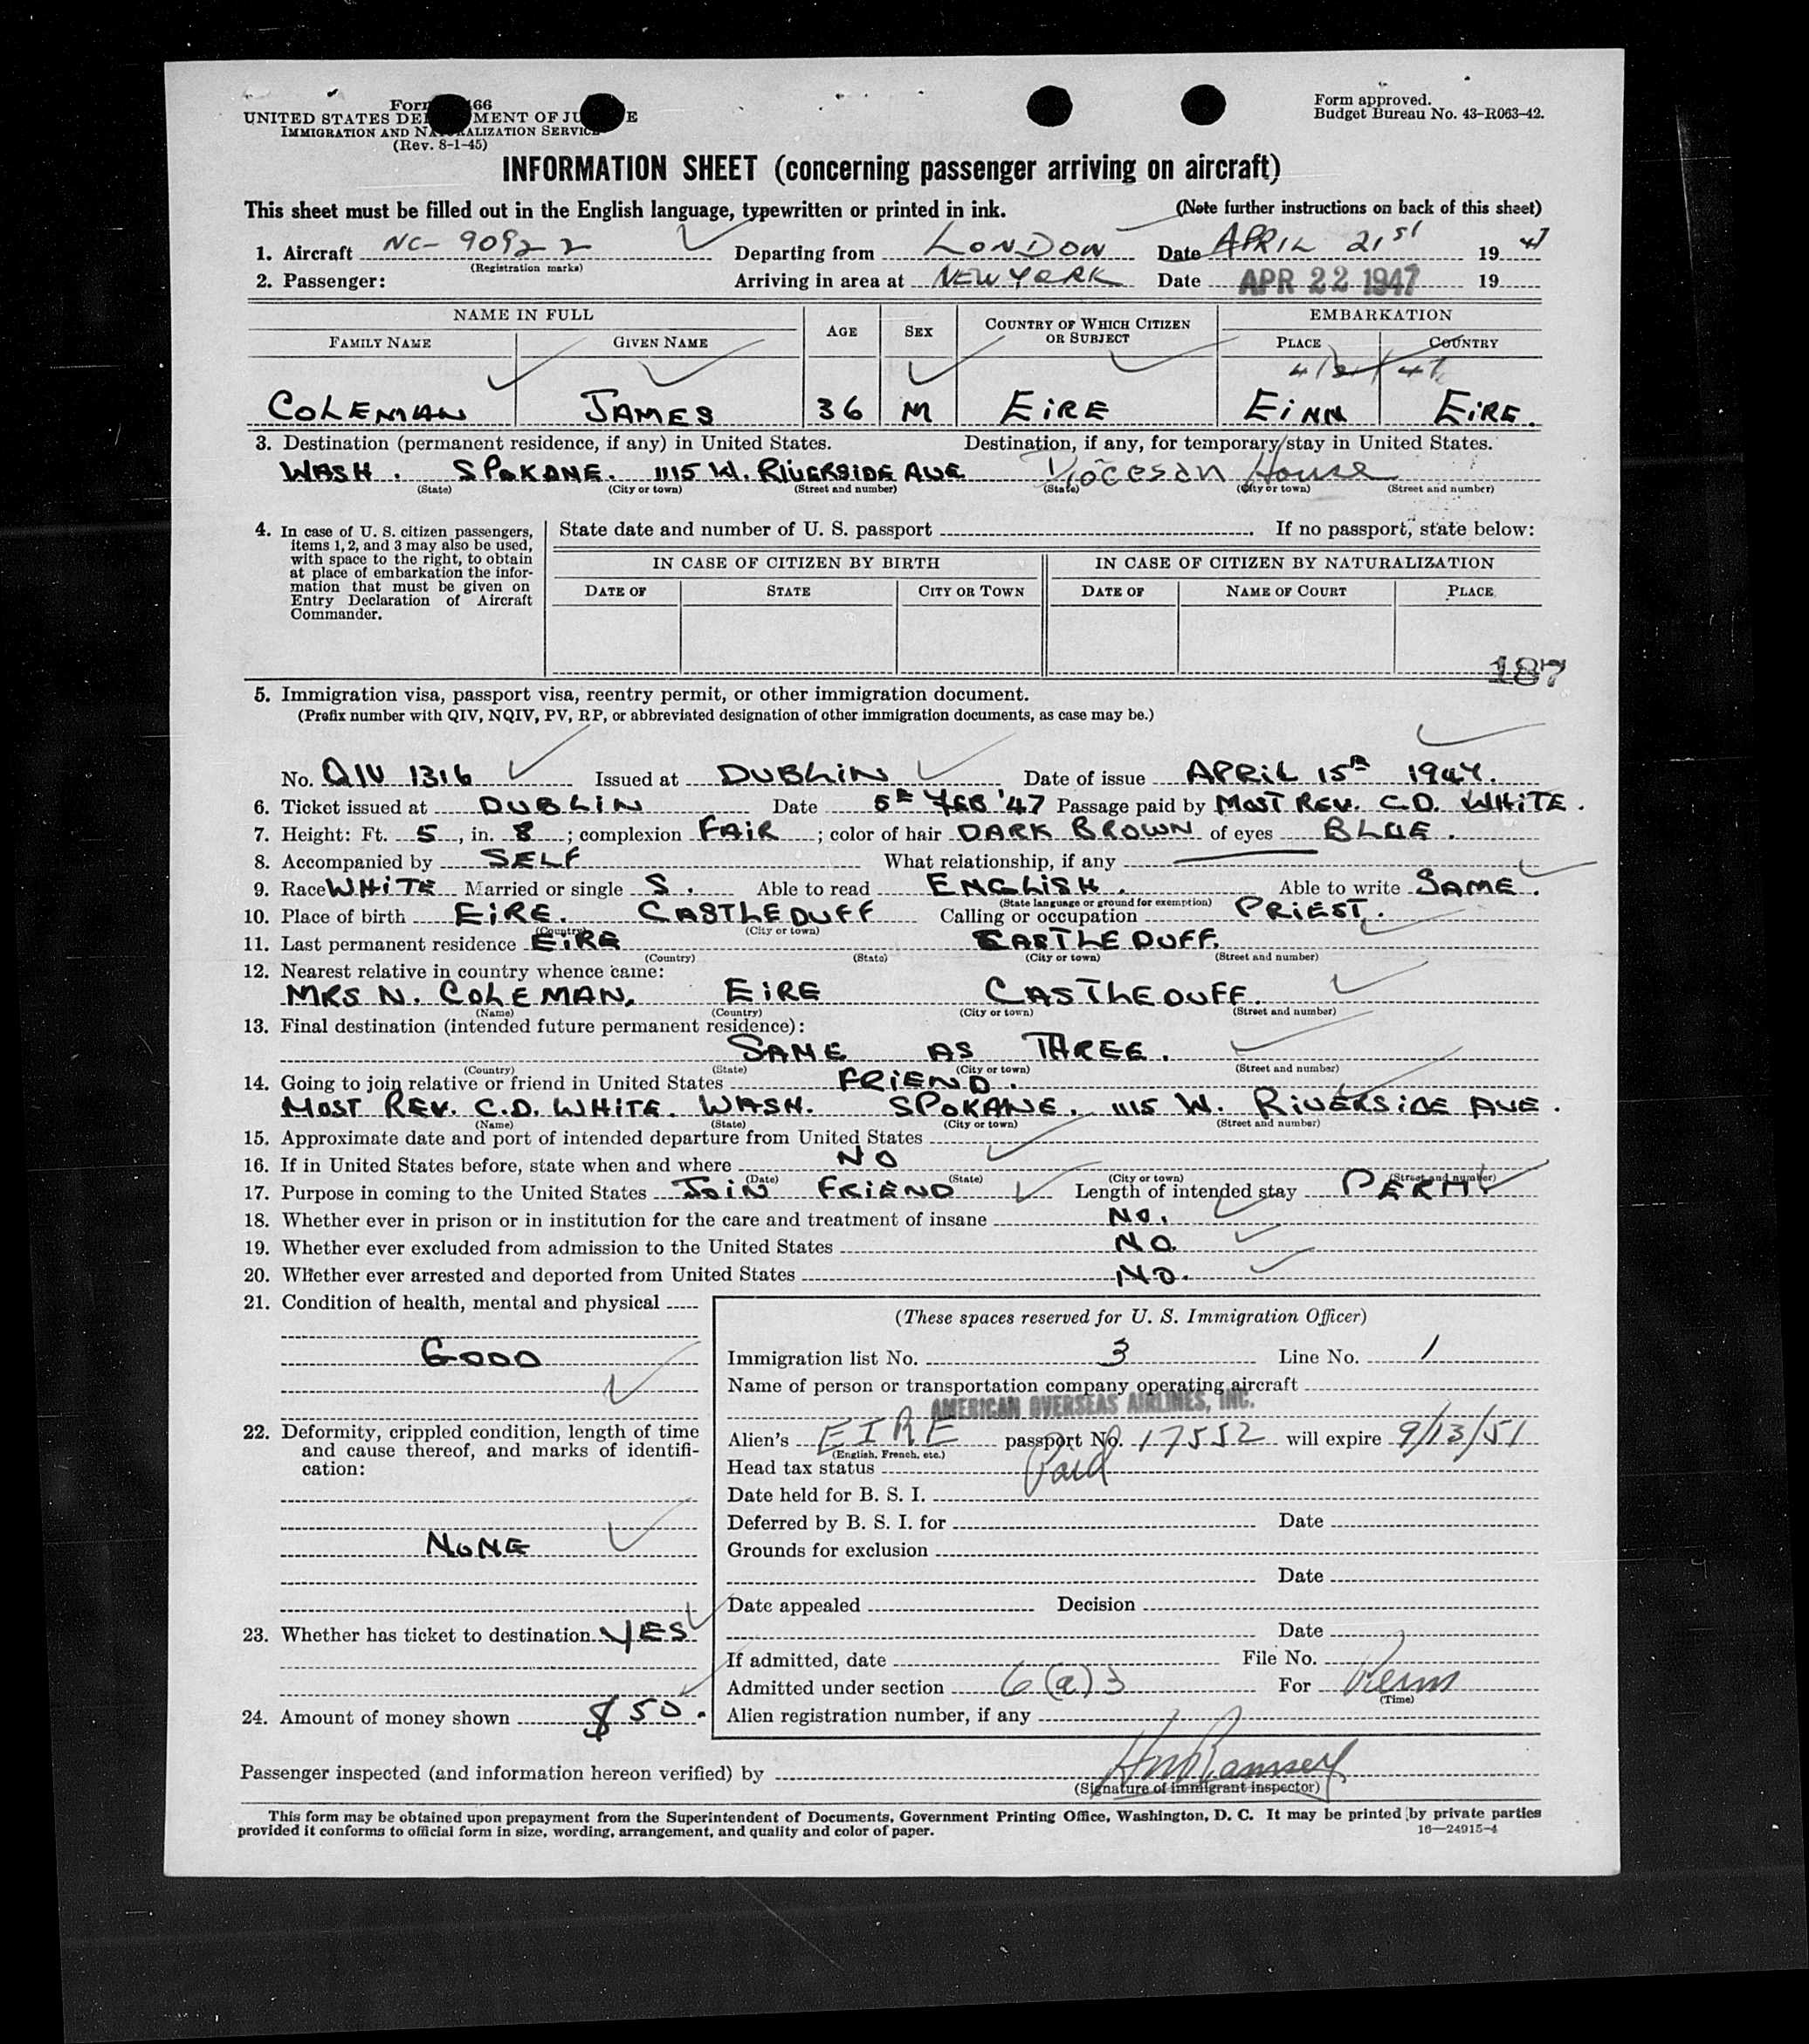 Form 66
UNITED STATES DE MENT OF JU E
IMMIGRATION AND NA ALIZATION SERVICE
(Rev. 8-1-45)
Form approved.
Budget Bureau No. 43-R063-42.
INFORMATION SHEET (concerning passenger arriving on aircraft)
This sheet must be filled out in the English language, typewritten or printed in ink. (Note further instructions on back of this sheet)
1. Aircraft NC-90922 Departing from LONDON Date APRIL 21st 1947
(Registration marks)
2. Passenger: Arriving in area at NEW YORK Date APR 22 1947 19
NAME IN FULL AGE SEX COUNTRY OF WHICH CITIZEN OR SUBJECT EMBARKATION
FAMILY NAME GIVEN NAME PLACE COUNTRY
4/21/47
COLEMAN JAMES 36 M EIRE EINN EIRE.
3. Destination (permanent residence, if any) in United States. Destination, if any, for temporary stay in United States.
WASH. SPOKANE. 1115 W. RIVERSIDE AVE Diocesan House
(State) (City or town) (Street and number) (State) (City or town) (Street and number)
4. In case of U. S. citizen passengers, items 1, 2, and 3 may also be used, with space to the right, to obtain at place of embarkation the information that must be given on Entry Declaration of Aircraft Commander.
State date and number of U. S. passport . If no passport, state below:
IN CASE OF CITIZEN BY BIRTH IN CASE OF CITIZEN BY NATURALIZATION
DATE OF STATE CITY OR TOWN DATE OF NAME OF COURT PLACE
187
5. Immigration visa, passport visa, reentry permit, or other immigration document.
(Prefix number with QIV, NQIV, PV, RP, or abbreviated designation of other immigration documents, as case may be.)
No. QIV 1316 Issued at DUBLIN Date of issue APRIL 15th 1947.
6. Ticket issued at DUBLIN Date 5th FEB '47 Passage paid by MOST REV. C.D. WHITE.
7. Height: Ft. 5, in. 8; complexion FAIR; color of hair DARK BROWN of eyes BLUE.
8. Accompanied by SELF What relationship, if any
9. Race WHITE Married or single S. Able to read ENGLISH. Able to write SAME.
(State language or ground for exemption)
10. Place of birth EIRE. CASTLEDUFF Calling or occupation PRIEST.
(Country) (City or town)
11. Last permanent residence EIRE CASTLEDUFF.
(Country) (State) (City or town) (Street and number)
12. Nearest relative in country whence came:
MRS N. COLEMAN, EIRE CASTLEDUFF.
(Name) (Country) (City or town) (Street and number)
13. Final destination (intended future permanent residence):
SAME AS THREE.
(Country) (State) (City or town) (Street and number)
14. Going to join relative or friend in United States FRIEND.
MOST REV. C.D. WHITE. WASH. SPOKANE. 1115 W. RIVERSIDE AVE.
(Name) (State) (City or town) (Street and number)
15. Approximate date and port of intended departure from United States
16. If in United States before, state when and where NO
(Date) (State) (City or town) (Street and number)
17. Purpose in coming to the United States JOIN FRIEND Length of intended stay PERM
18. Whether ever in prison or in institution for the care and treatment of insane NO.
19. Whether ever excluded from admission to the United States NO.
20. Whether ever arrested and deported from United States NO.
21. Condition of health, mental and physical
GOOD
22. Deformity, crippled condition, length of time and cause thereof, and marks of identification:
NONE
23. Whether has ticket to destination YES
24. Amount of money shown $50.
(These spaces reserved for U. S. Immigration Officer)
Immigration list No. 3 Line No. 1
Name of person or transportation company operating aircraft
AMERICAN OVERSEAS AIRLINES, INC.
Alien's EIRE passport No. 17552 will expire 9/13/51
(English, French, etc.)
Head tax status Paid
Date held for B. S. I.
Deferred by B. S. I. for Date
Grounds for exclusion
Date
Date appealed Decision
Date
If admitted, date File No.
Admitted under section 6(a)3 For Perm
(Time)
Alien registration number, if any
Passenger inspected (and information hereon verified) by HM Ramsey
(Signature of immigrant inspector)
This form may be obtained upon prepayment from the Superintendent of Documents, Government Printing Office, Washington, D. C. It may be printed by private parties
provided it conforms to official form in size, wording, arrangement, and quality and color of paper. 16—24915-4